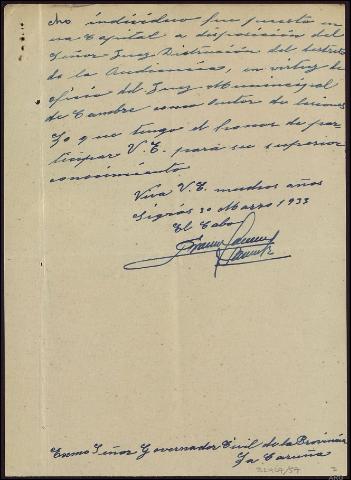 cho individuo fue puesto en
esa Capital a disposición del
Señor Juez Instrucción del distrito
de la Audiencia, en virtud de
oficio del Juez Municipal
de Cambre como autor de lesiones
Lo que tengo el honor de par
ticipar V.E. para su superior
conocimiento
Viva V.E. muchos años
Sigrás 30 Marzo 1933
El Cabo
Exmo Señor Governador Civil de la Provincia
La Coruña